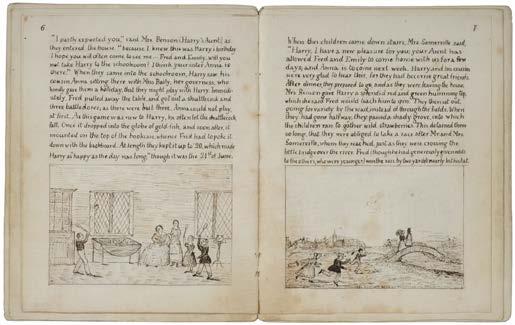 6
"I partly expected you," said Mrs. Benson (Harry's Aunt) as
they entered the house "because I knew this was Harry's birthday
I hope you will often come to see me. — Fred and Emily, will you
not take Harry to the schoolroom? I think your sister Anna is
there." When they came into the schoolroom, Harry saw his
cousin Anna sitting there with Miss Baily, her governess, who
kindly gave them a holiday, that they might play with Harry. Immedi-
ately, Fred pulled away the table, and got out a shuttlecock and
three battledores; as there were but three, Anna could not play,
at first. As this game was new to Harry, he often let the shuttlecock
fall. Once it dropped into the globe of gold-fish, and soon after, it
mounted on the top of the bookcase, whence Fred had to poke it
down with the backboard. At length they kept it up to 20, which made
Harry as happy "as the day was long," though it was the 21st of June.
7
When the children came down stairs, Mrs. Somerville said,
"Harry, I have a new pleasure for you; your Aunt has
allowed Fred and Emily to come home with us for a few
days; and Anna is to come next week. Harry and his cousins
were very glad to hear this, for they had become great friends.
After dinner, they prepared to go, and as they were leaving the house,
Mrs. Benson gave Harry a splendid rod and green
which she said Fred would teach him to spin. They then set out,
going homewards by the wood, instead of through the fields. When
they had gone halfway, they passed a shady grove, into which
the children ran to gather wild strawberries. This detained them
so long, that they were obliged to take a race after Mr and Mrs.
Somerville, whom they reached, just as they were crossing the
little bridge over the river. Fred (though he had generously given odds
to the others, who were younger) won the race, by two yards, nearly